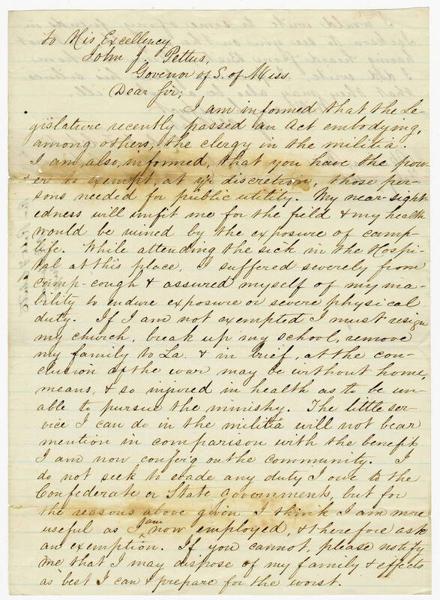 To His Excellency
John J. Pettus,
Govenor of S. of Miss.
Dear Sir;
I am informed that the Le-
gislature recently passed an Act embodying,
among others, the clergy in the militia.
I am, also, informed, that you have the pow-
er to exempt, at yr discretion, those per-
sons needed for public utility. My near-sight-
edness will unfit me for the field & my health
would be ruined by the exposure of camp-
life. While attending the sick in the Hospi-
tal at this place, I suffered severely from
camp-cough & assured myself of my ina-
bility to endure exposure or severe physical
duty. If I am not exempted I must resign
my church, break up my school, remove
my family to La. & in brief, at the con-
clusion of the war may be without home,
means, & so injured in health as to be un-
able to pursue the ministry. The little ser-
vice I can do in the militia will not bear
mention in comparison with the benefit
I am now confer'g on the community. I
do not seek to evade any duty I owe to the
Confederate or State Governments, but for
the reasons above given I think I am more
useful as I am now employed, & therefore ask
an exemption. If you cannot, please notify
me that I may dispose of my family & effects
as best I can & prepare for the worst.